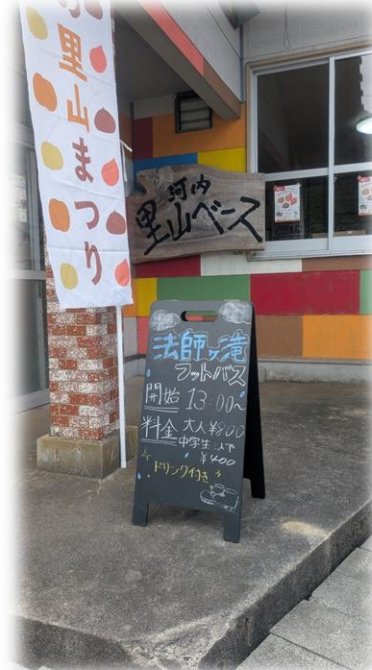 里山まつり
河内
里山ベース
法師ヶ滝
フットバス
開始 13:00〜
料金 大人¥800
中学生以下
¥400
ドリンク付き